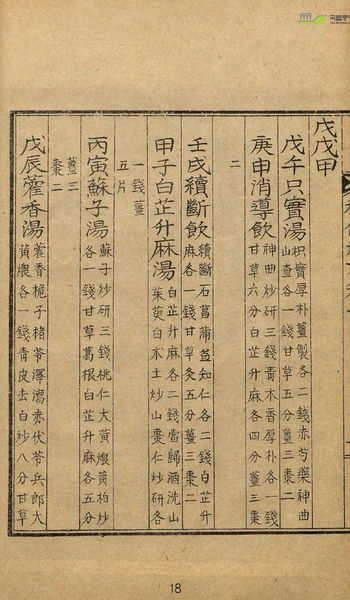 戊戊甲
戊午只實湯
枳實厚朴薑製各二錢赤芍藥神曲
山査各一錢甘草五分薑三棗二
庚申消導飮
神曲炒研三錢靑木香厚朴各一錢
甘草六分白芷升麻各四分薑三棗
二
壬戌續斷飮
續斷石菖蒲益知仁各二錢白芷升
麻各一錢甘草灸五分薑三棗二
甲子白芷升麻湯
白芷升麻各二錢當歸酒洗山
茱萸白朮土炒山棗仁炒研各
一錢薑
五片
丙寅蘇子湯
蘇子炒研三錢桃仁大黃煨黃柏炒
各一錢甘草葛根白芷升麻各五分
薑三
棗二
戊辰藿香湯
藿香梔子楮苓澤瀉赤伏苓兵郎大
黃煨各一錢靑皮去白炒八分甘草
18